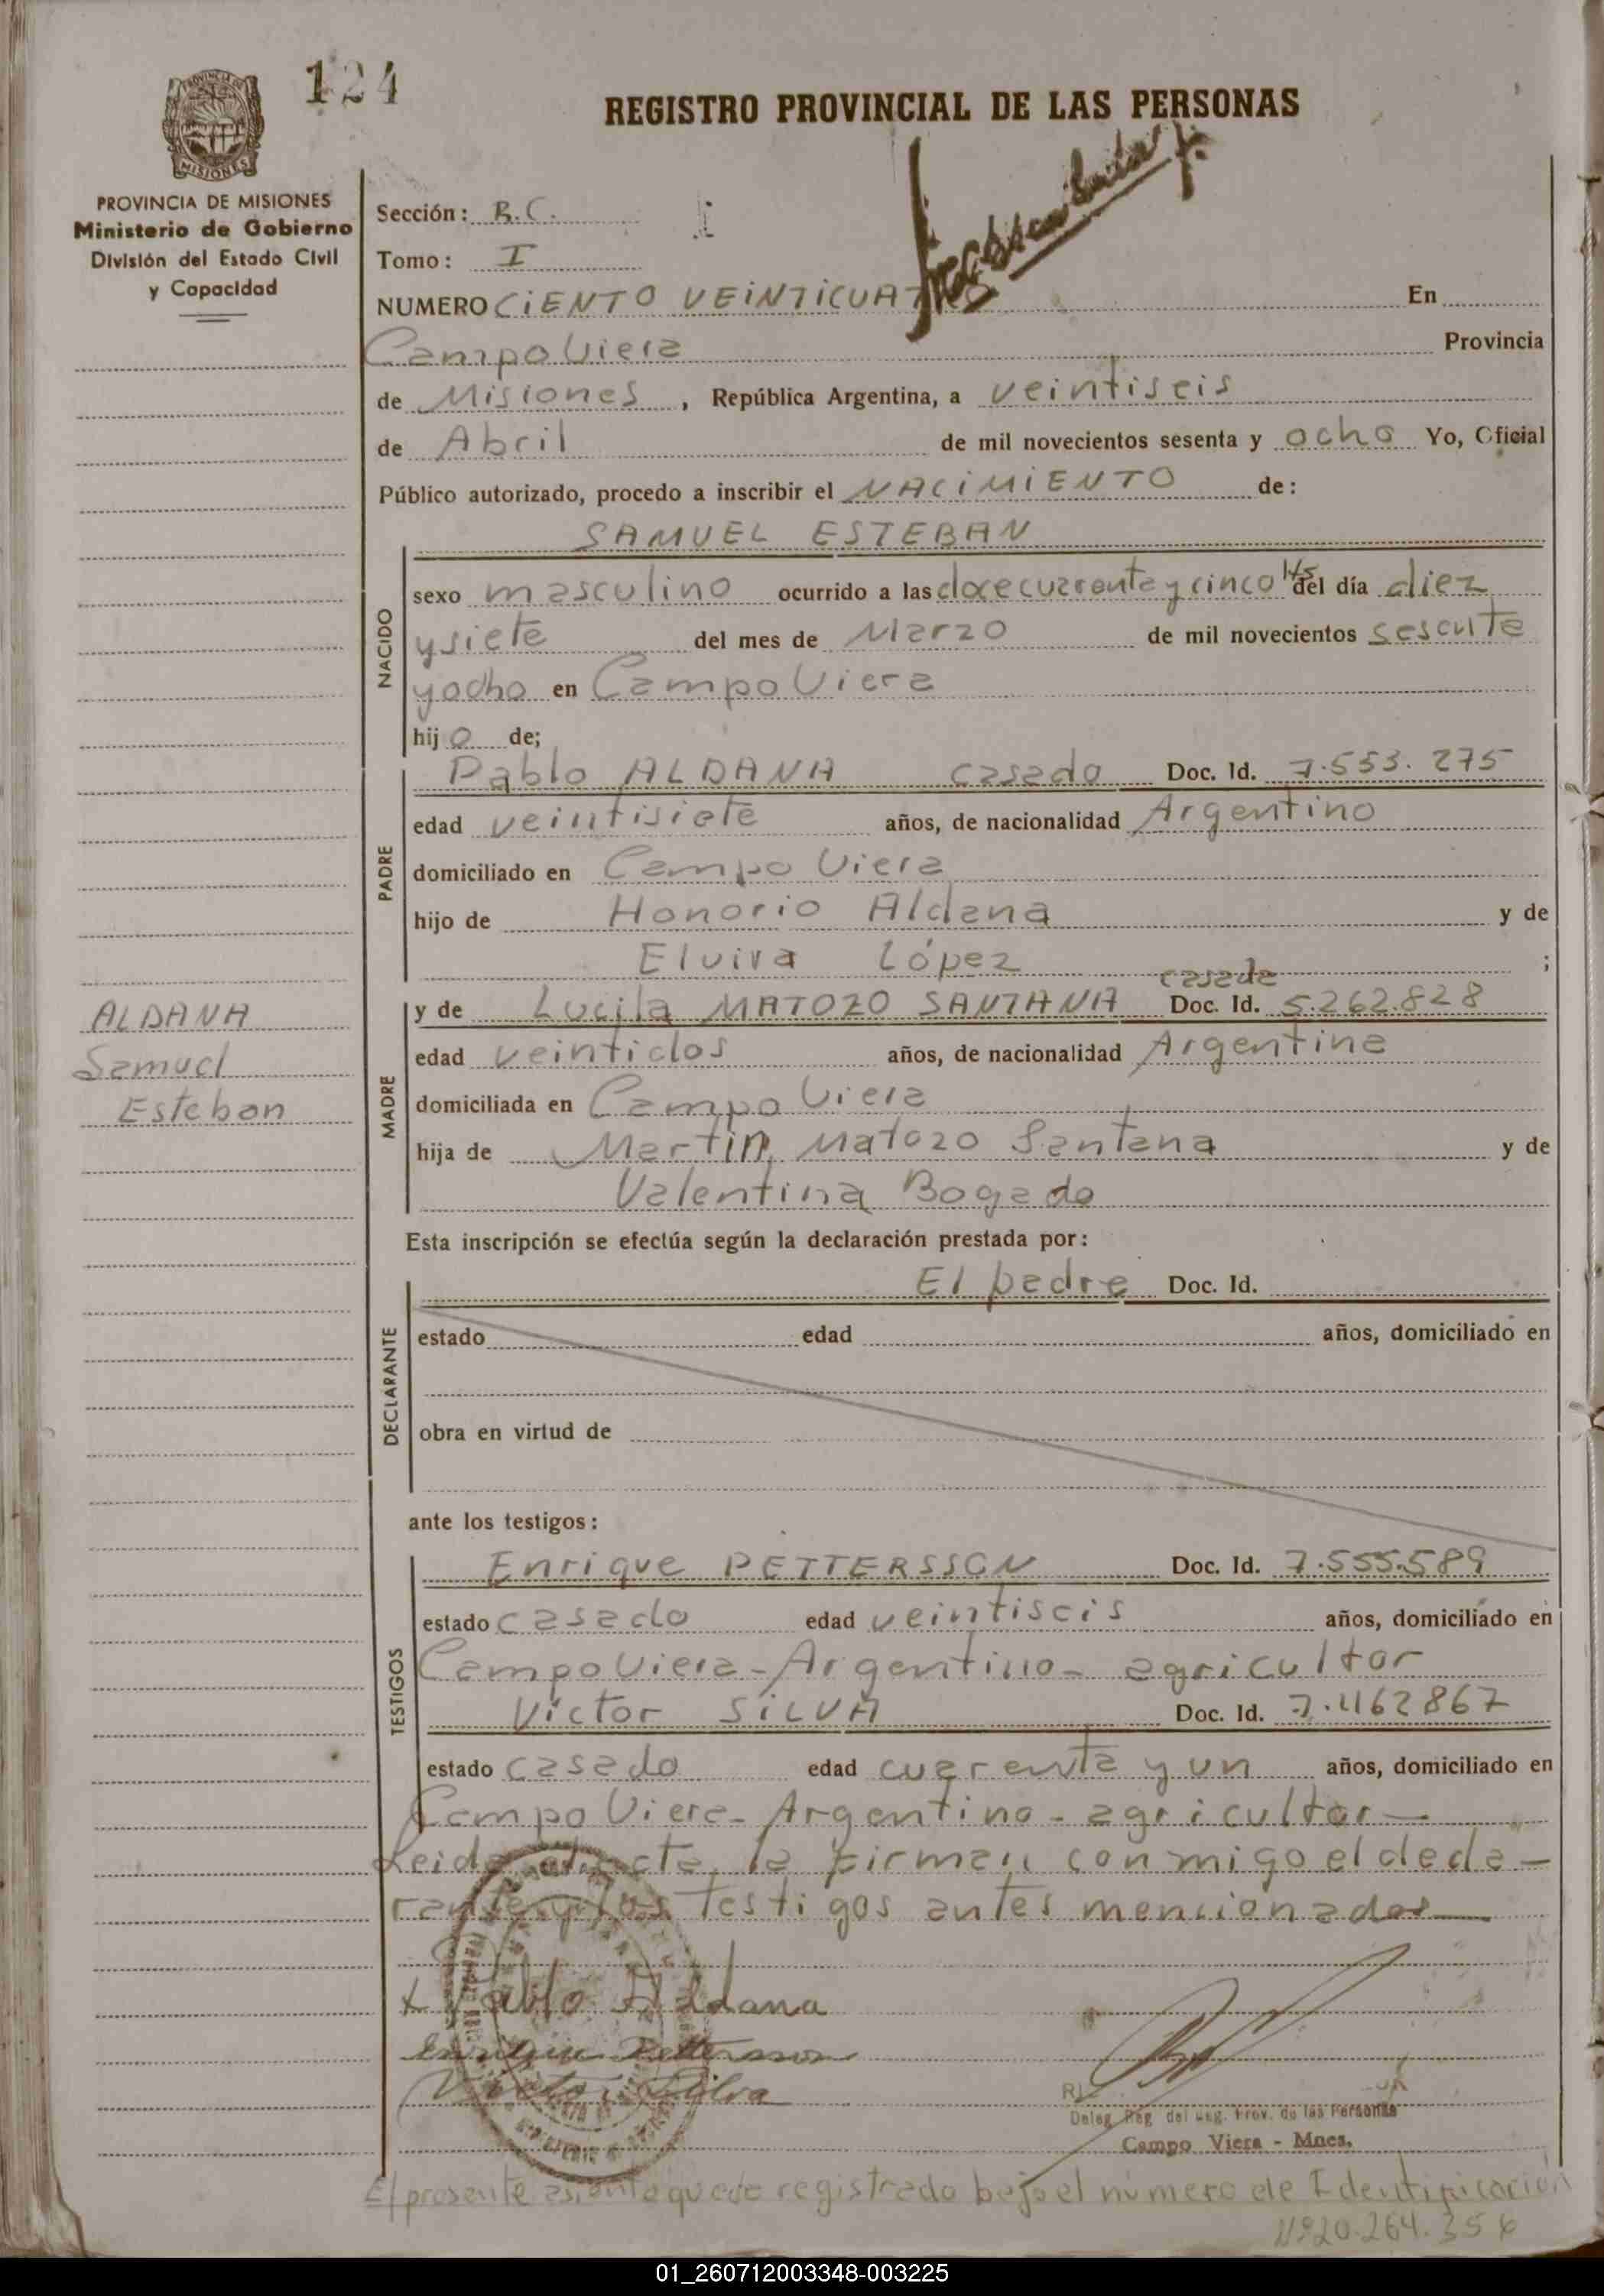 124
REGISTRO PROVINCIAL DE LAS PERSONAS
PROVINCIA DE MISIONES
Ministerio de Gobierno
División del Estado Civil
y Capacidad
Sección: R.C.
Tomo: I
NUMERO CiENTO VEiNTiCUATRO En
Campo Viera Provincia
de Misiones, República Argentina, a veintiseis
de Abril de mil novecientos sesenta y ocho Yo, Oficial
Público autorizado, procedo a inscribir el NACiMiENTO de:
SAMUEL ESTEBAN
NACIDO
sexo masculino ocurrido a las doce cuarenta y cinco hs del día diez
y siete del mes de Marzo de mil novecientos sesenta
y ocho en Campo Viera
hijo de;
PADRE
Pablo ALDANA casado Doc. Id. 7.553.275
edad veintisiete años, de nacionalidad Argentino
domiciliado en Campo Viera
hijo de Honorio Aldana y de
Elvira López ;
casada
MADRE
y de Lucila MATOZO SANTANA Doc. Id. 5.262.828
edad veintidos años, de nacionalidad Argentina
domiciliada en Campo Viera
hija de Martin Matozo Santana y de
Valentina Bogado
ALDANA
Samuel
Esteban
Esta inscripción se efectúa según la declaración prestada por:
DECLARANTE
El padre Doc. Id.
estado edad años, domiciliado en
obra en virtud de
ante los testigos:
TESTIGOS
Enrique PETTERSSON Doc. Id. 7.555.589
estado casado edad veintiseis años, domiciliado en
Campo Viera - Argentino - agricultor
Victor SiLVA Doc. Id. 7.462867
estado casado edad cuarenta y un años, domiciliado en
Campo Viera - Argentino - agricultor —
Leida el acta, la firman conmigo el decla-
rante y los testigos antes mencionados —
Pablo Aldana
Enrique Pettersson
Victor Silva
Deleg. Reg. del Reg. Prov. de las Personas
Campo Viera - Mnes.
El presente asiento queda registrado bajo el número de Identificación
Nº 20.264.356
01_260712003348-003225